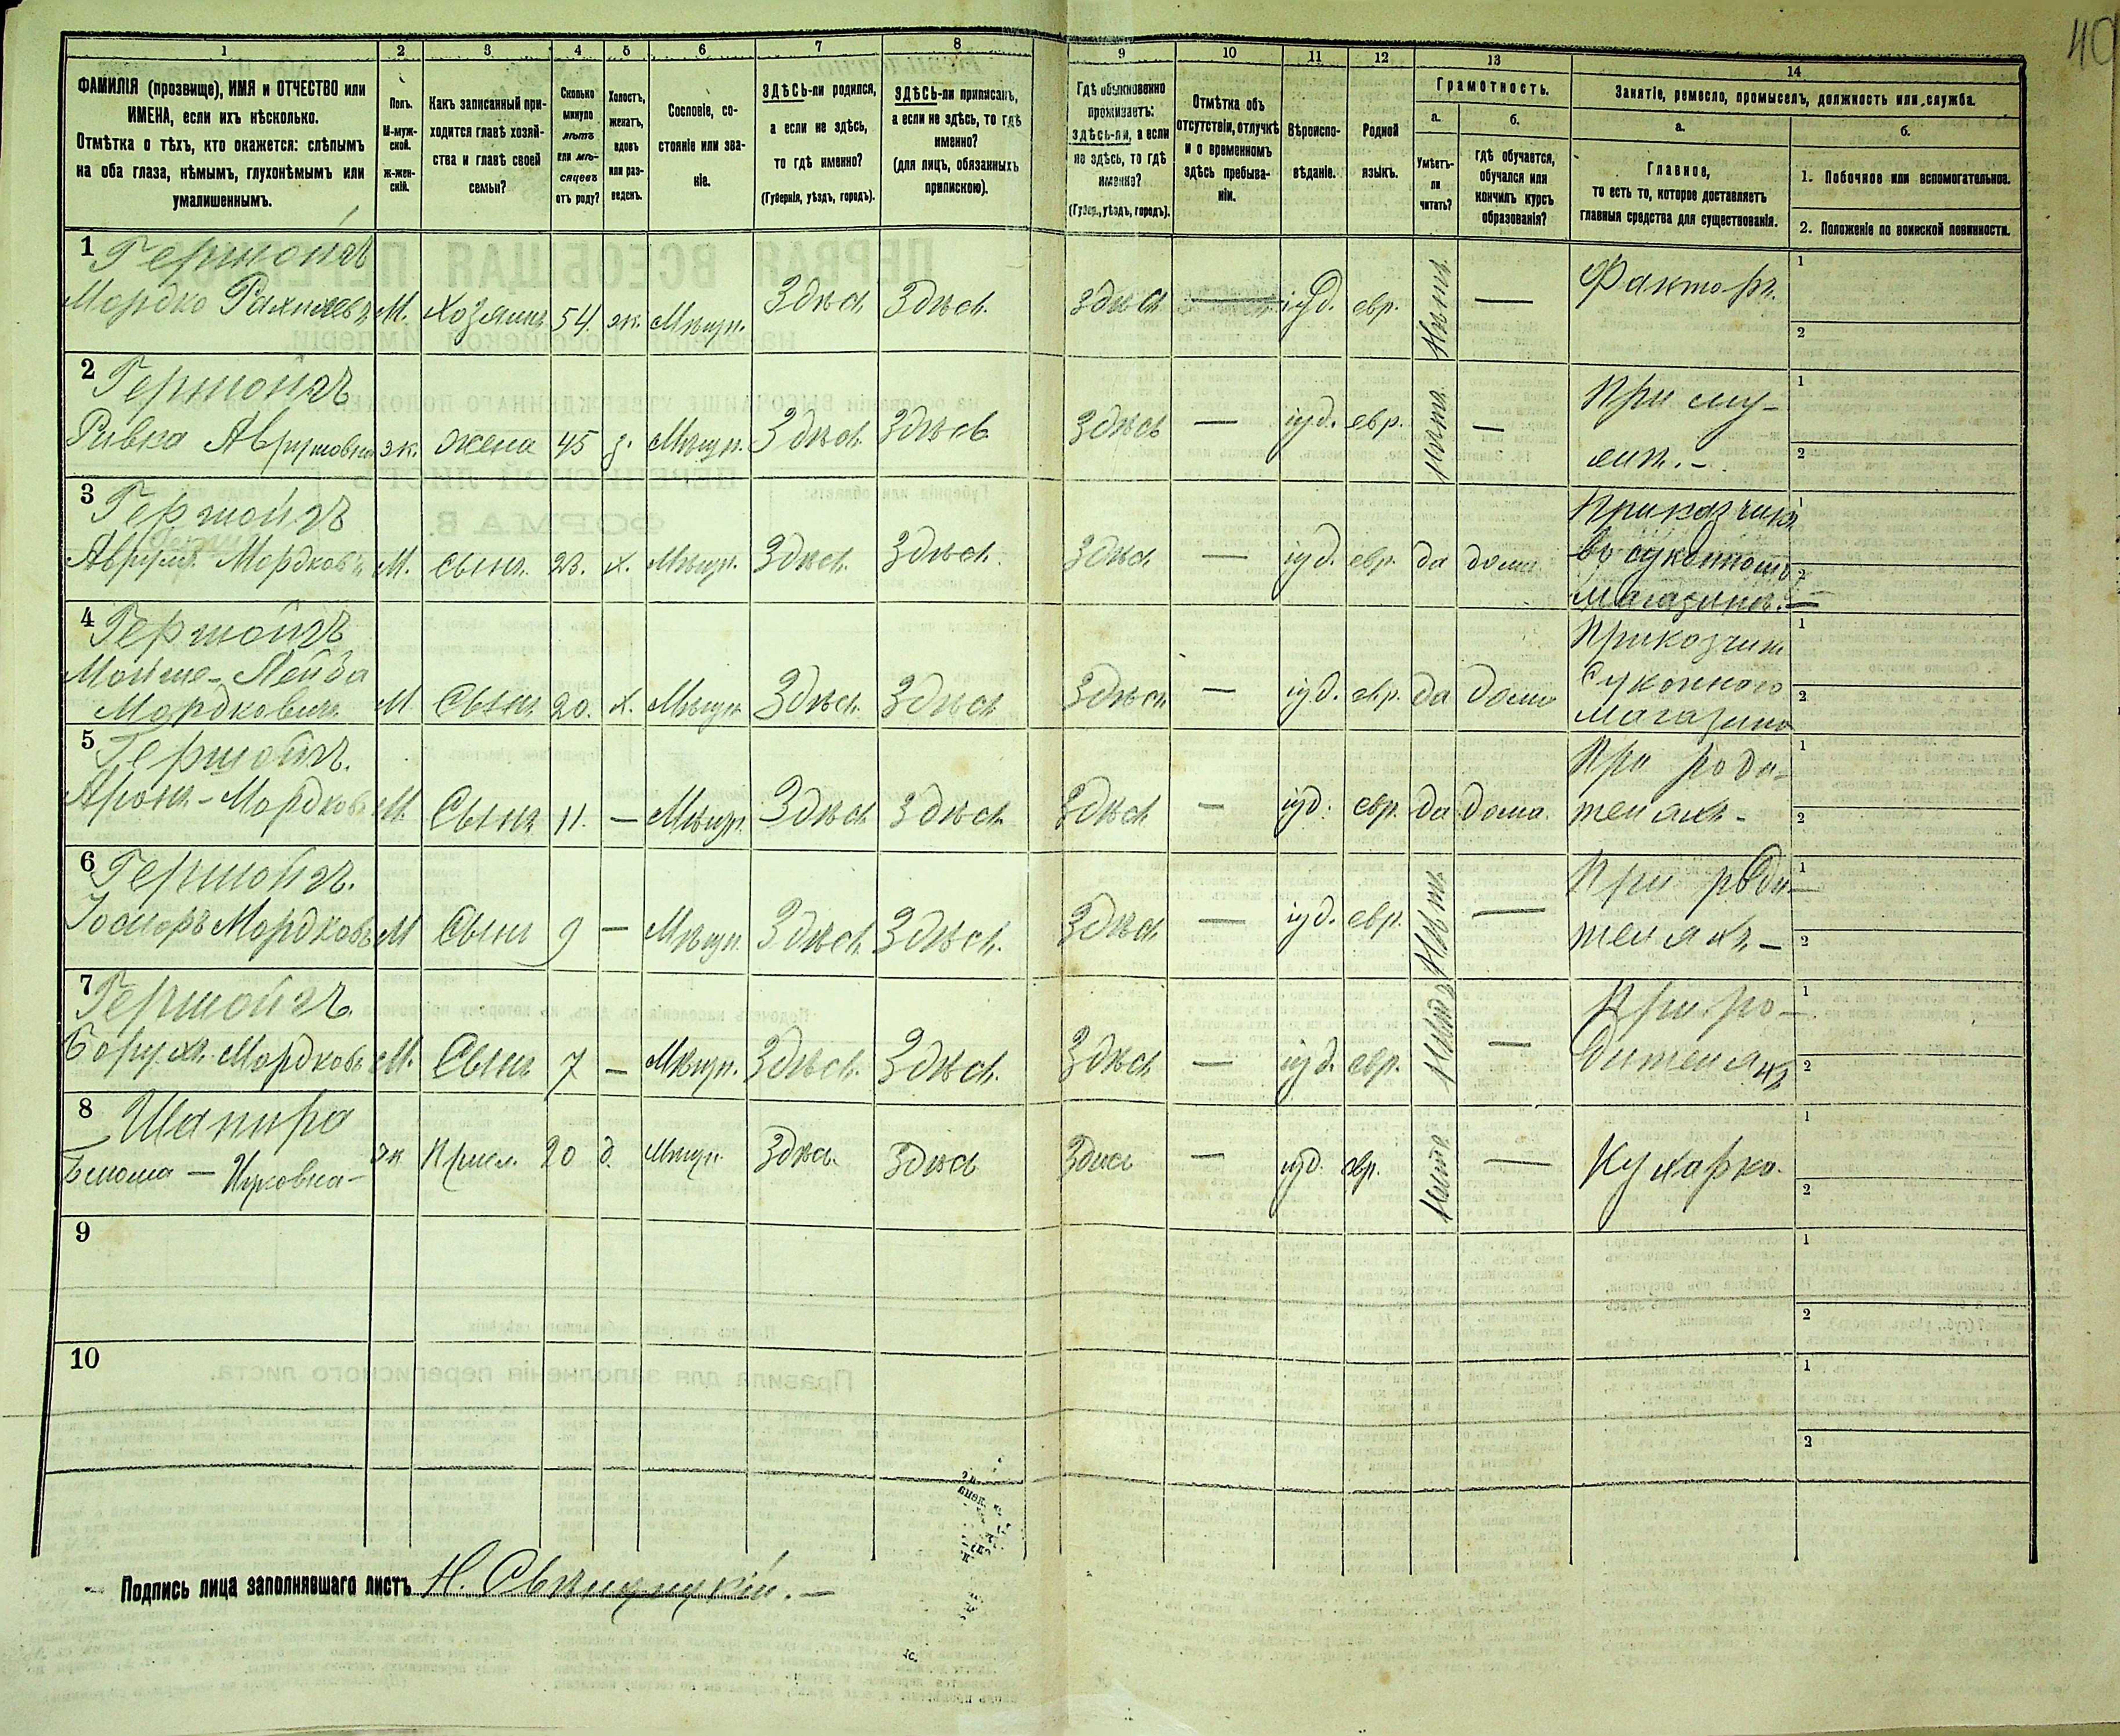 40
1 2 3 4 5 6 7 8 9 10 11 12 13 14
ФАМИЛІЯ (прозвище), ИМЯ и ОТЧЕСТВО или
ИМЕНА, если ихъ нѣсколько.
Отмѣтка о тѣхъ, кто окажется: слѣпымъ
на оба глаза, нѣмымъ, глухонѣмымъ или
умалишеннымъ.
Полъ.
М-муж-
ской.
ж-жен-
скій.
Какъ записанный при-
ходится главѣ хозяй-
ства и главѣ своей
семьи?
Сколько
минуло
лѣтъ
или мѣ-
сяцевъ
отъ роду?
Холостъ,
женатъ,
вдовъ
или раз-
веденъ.
Сословіе, со-
стояніе или зва-
ніе.
ЗДѢСЬ-ли родился,
а если не здѣсь,
то гдѣ именно?
(Губернія, уѣздъ, городъ).
ЗДѢСЬ-ли приписанъ,
а если не здѣсь, то гдѣ
именно?
(для лицъ, обязанныхъ
припискою).
Гдѣ обыкновенно
проживаетъ:
здѣсь-ли, а если
не здѣсь, то гдѣ
именно?
(Губер., уѣздъ, городъ).
Отмѣтка объ
отсутствіи, отлучкѣ
и о временномъ
здѣсь пребыва-
ніи.
Вѣроиспо-
вѣданіе.
Родной
языкъ.
Грамотность.
а.
Умѣетъ-
ли
читать?
б.
гдѣ обучается,
обучался или
кончилъ курсъ
образованія?
Занятіе, ремесло, промыселъ, должность или служба.
а.
Главное,
то есть то, которое доставляетъ
главныя средства для существованія.
б.
1. Побочное или вспомогательное.
2. Положеніе по воинской повинности.
1 Гершойгъ
Мордко Рахмилевъ М. Хозяинъ 54. ж. Мѣщ. Здѣсь Здѣсь. Здѣсь — іуд. евр. Нѣтъ — Факторъ. 1 2
2 Гершойгъ
Ривка Аврумовна ж. жена 45 з. Мѣщ. Здѣсь Здѣсь Здѣсь — іуд. евр. Нѣтъ — При му-
жѣ. - 1 2
3 Гершойгъ
Аврумъ Мордковъ М. сынъ. 23. х. Мѣщ. Здѣсь. Здѣсь. Здѣсь — іуд. евр. да дома Приказчикъ
въ суконномъ
Магазинѣ. 1 2
4 Гершойгъ
Мойше-Лейба
Мордковичъ М Сынъ 20. х. Мѣщ. Здѣсь. Здѣсь Здѣсь — іуд. евр. да дома Приказчик
суконнаго
магазина 1 2
5 Гершойгъ.
Аронъ - Мордковъ М. Сынъ 11. — Мѣщ. Здѣсь Здѣсь Здѣсь — іуд. евр. да дома. При роди-
теляхъ - 1 2
6 Гершойгъ.
Мордковъ М Сынъ 9 — Мѣщ. Здѣсь. Здѣсь. Здѣсь — іуд. евр. Нѣтъ — При роди-
теляхъ — 1 2
7 Гершойгъ.
Борухъ Мордковъ М. Сынъ 7 — Мѣщ. Здѣсь. Здѣсь. Здѣсь — іуд. евр. Нѣтъ — При ро-
дителяхъ 1 2
8 Шапиро
Блюма — ж Присл. 20 д. Мѣщ. Здѣсь. Здѣсь Здѣсь — іуд. евр. Нѣтъ — Кухарка. 1 2
9 1 2
10 1 2
Подпись лица заполнявшаго листъ